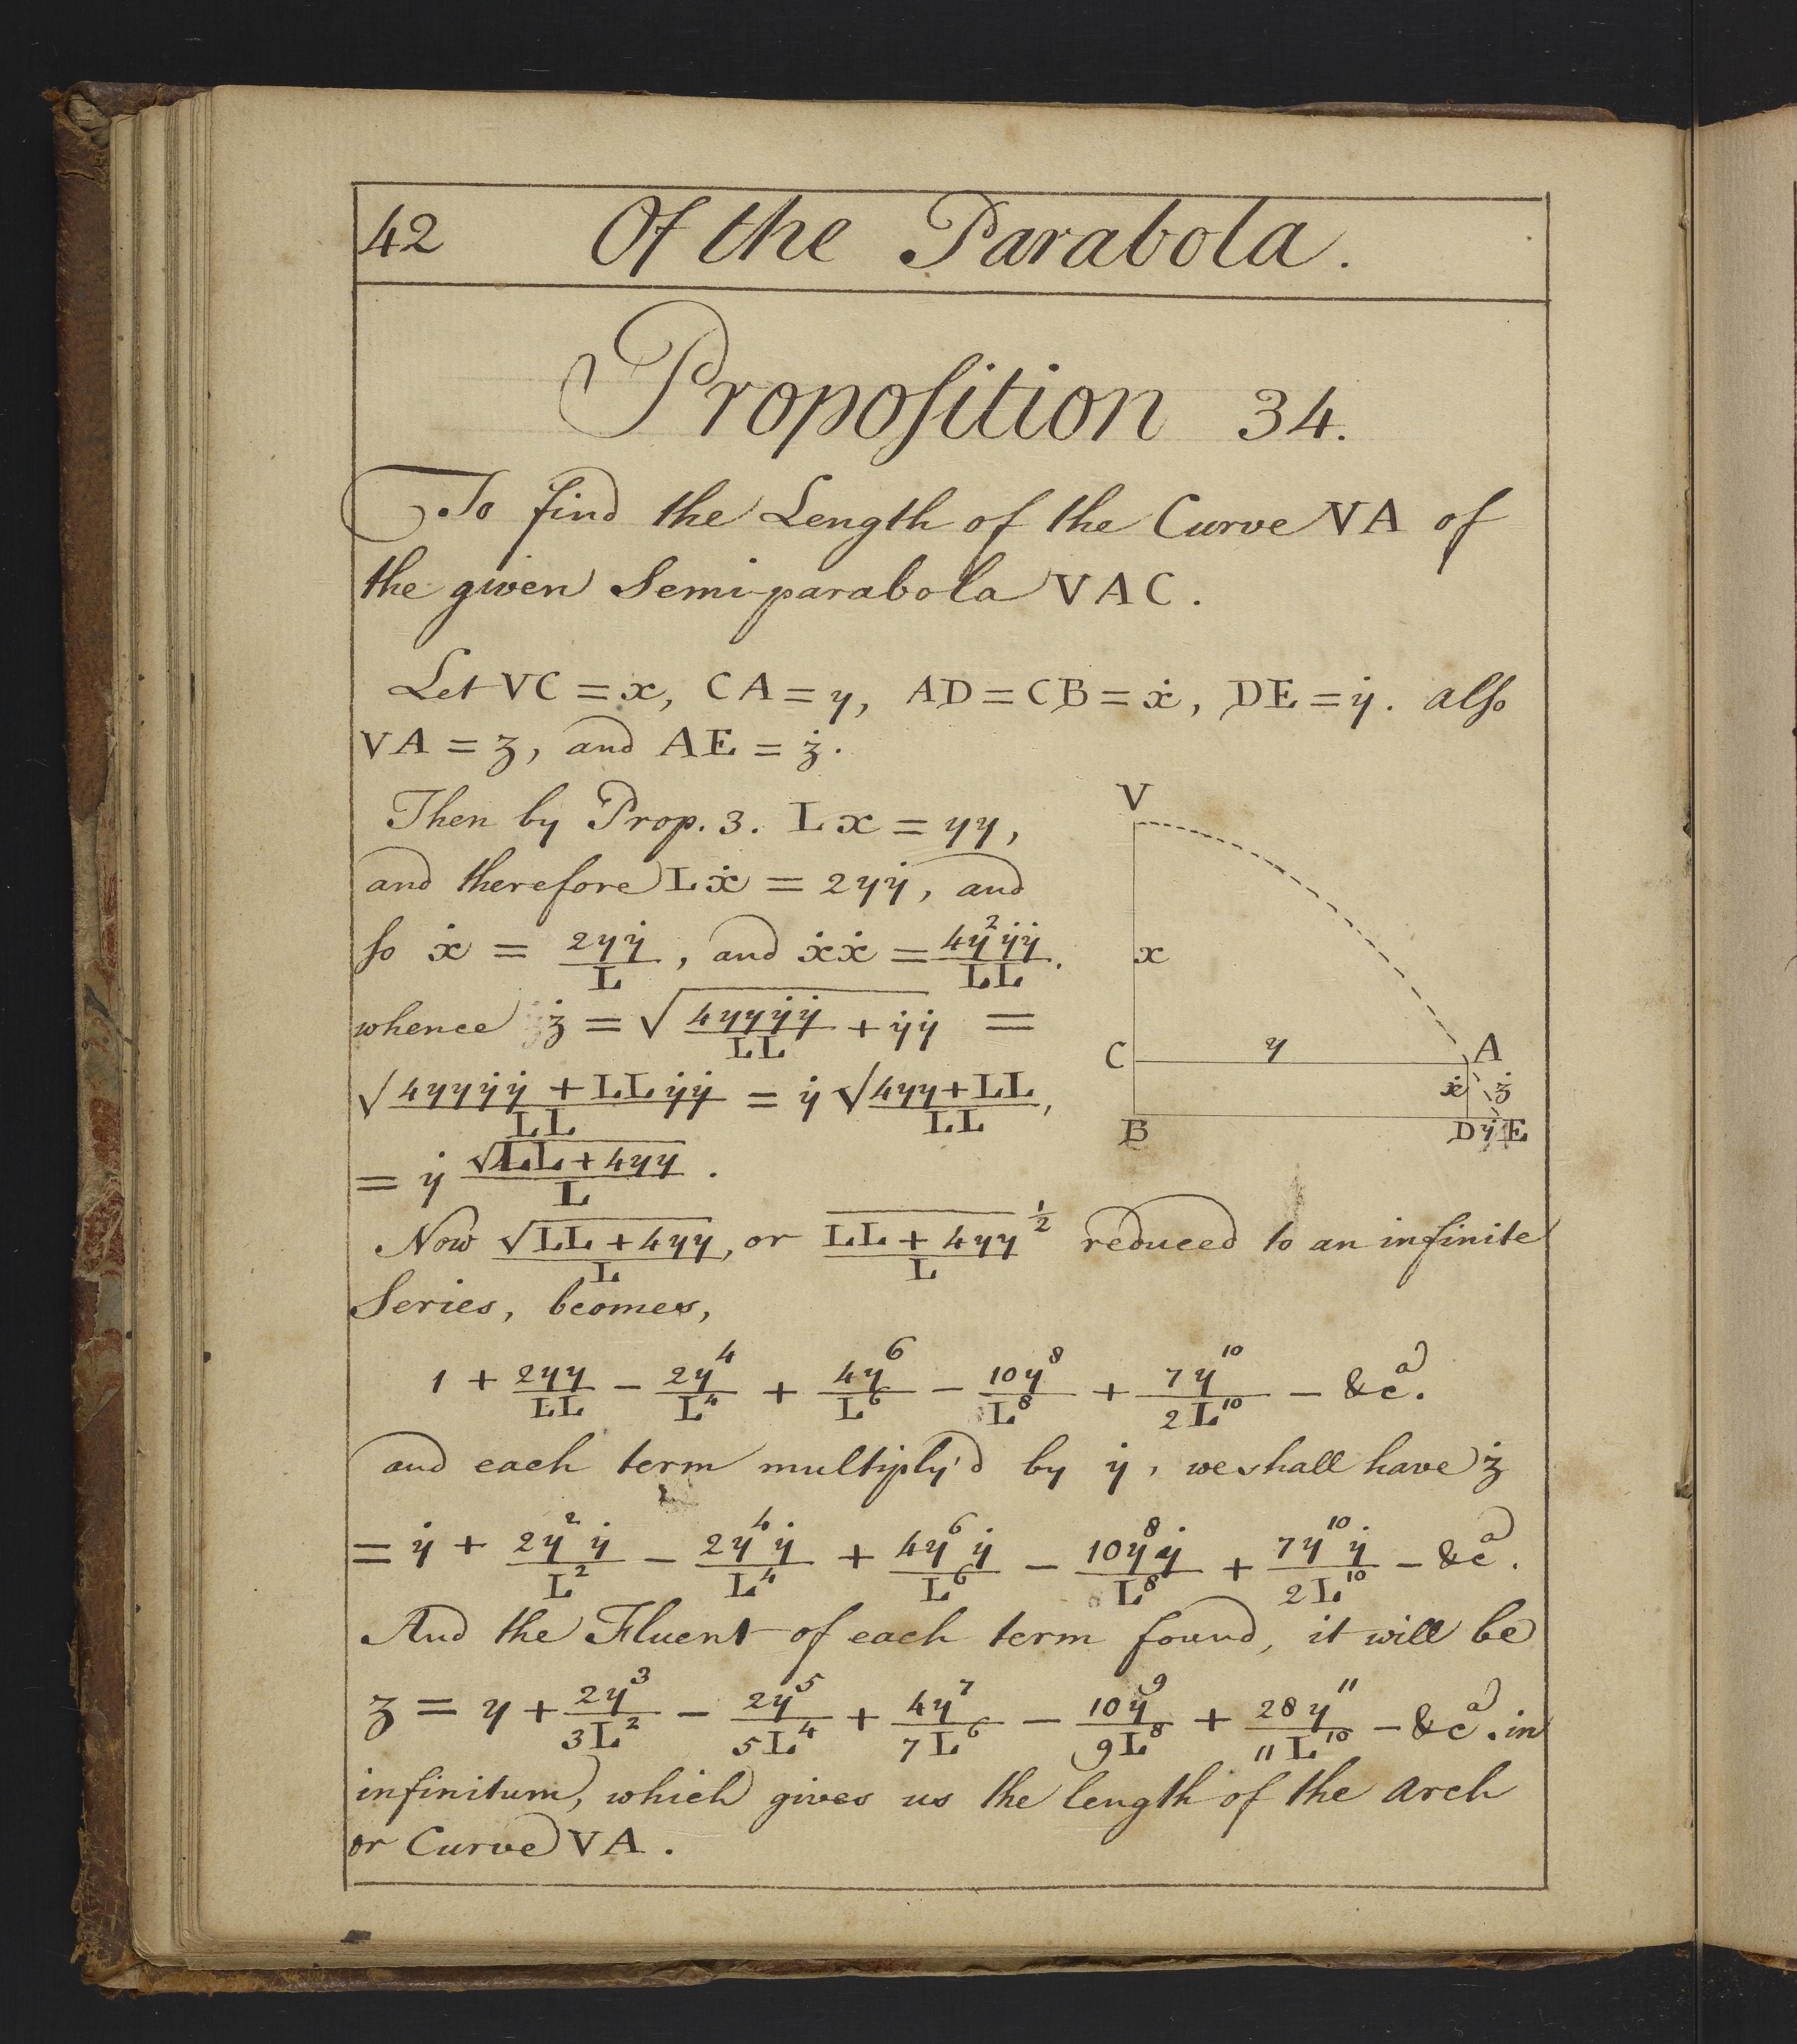 42 Of the Parabola.
Propoſition 34.
To find the Length of the Curve VA of
the given Semi-parabola VAC.
Let VC = x, CA = y, AD = CB = ẋ, DE = ẏ. alſo
VA = z, and AE = ż.
Then by Prop. 3. Lx = yy,
and therefore Lẋ = 2yẏ, and
ſo ẋ = 2yẏ/L, and ẋẋ = 4y²ẏẏ/LL.
whence ż = √(4yyẏẏ/LL + ẏẏ) =
√(4yyẏẏ + LLẏẏ)/LL = ẏ √(4yy+LL)/LL,
= ẏ √(LL + 4yy)/L.
V
x
C y A
ẋ ż
B D ẏ E
Now √(LL + 4yy)/L, or (LL + 4yy)^½/L reduced to an infinite
Series, becomes,
1 + 2yy/LL − 2y⁴/L⁴ + 4y⁶/L⁶ − 10y⁸/L⁸ + 7y¹⁰/2L¹⁰ − &cᵃ.
and each term multiply'd by ẏ, we shall have ż
= ẏ + 2y²ẏ/L² − 2y⁴ẏ/L⁴ + 4y⁶ẏ/L⁶ − 10y⁸ẏ/L⁸ + 7y¹⁰ẏ/2L¹⁰ − &cᵃ.
And the Fluent of each term found, it will be
z = y + 2y³/3L² − 2y⁵/5L⁴ + 4y⁷/7L⁶ − 10y⁹/9L⁸ + 28y¹¹/11L¹⁰ − &cᵃ. in
infinitum, which gives us the length of the Arch
or Curve VA.